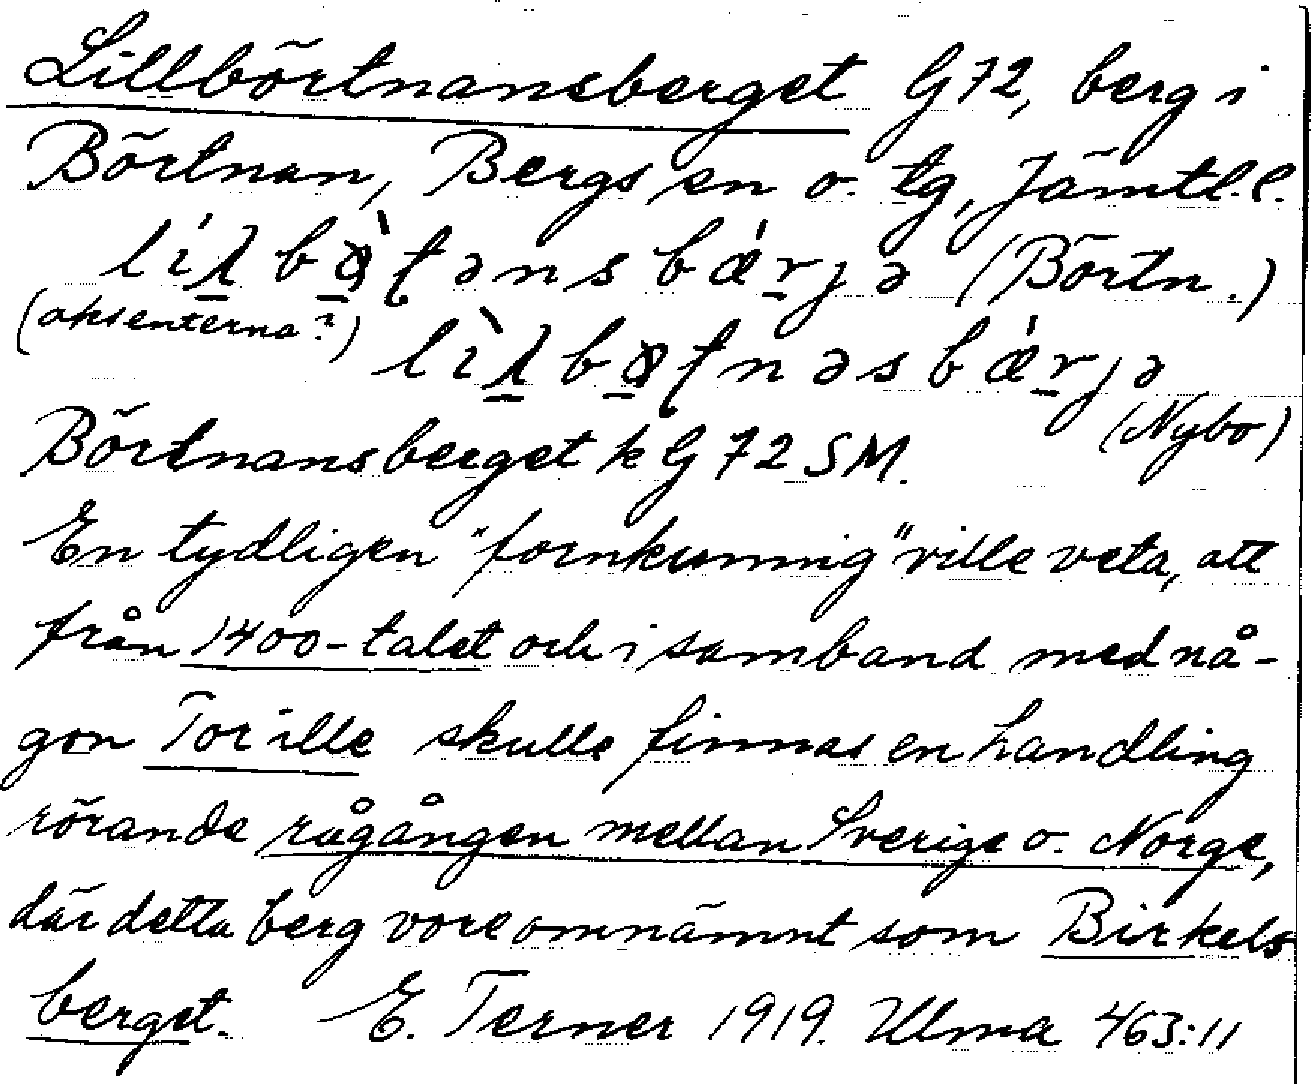 Lillbörtnansberget G72, berg i
Börtnan, Bergs sn o. tg, Jämtl. l.
(Börtn.)
(aksenterna?)
(Nybo)
Börtnansberget k G 72 SM.
En tydligen "fornkunnig" ville veta, att
från 1400-talet och i samband med nå-
gon Tor ille skulle finnas en handling
rörande rågången mellan Sverige o. Norge,
där detta berg vore omnämnt som Birkels
berget. E. Terner 1919. Ulma 463:11